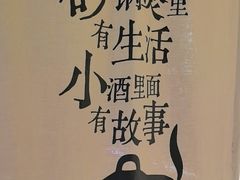 砂锅煲里
有生活
小酒里面
有故事